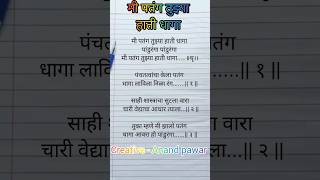 मी पतंग तुझ्या
हाती धागा
मी पतंग तुझ्या हाती धागा
पांडुरंगा पांडुरंगा
मी पतंग तुझ्या हाती धागा.... ॥धृ॥
पंचतत्वांचा केला पतंग
धागा लाविला निळा रंग......|| १ ||
साही शास्त्राचा सुटला वारा
चारी वेद्याचा आधार त्याला...|| २ ||
तुका म्हणे मी झालो पतंग
धागा आवरा हो पांडुरंगा.....|| ३ ||
Creative - Anand pawar